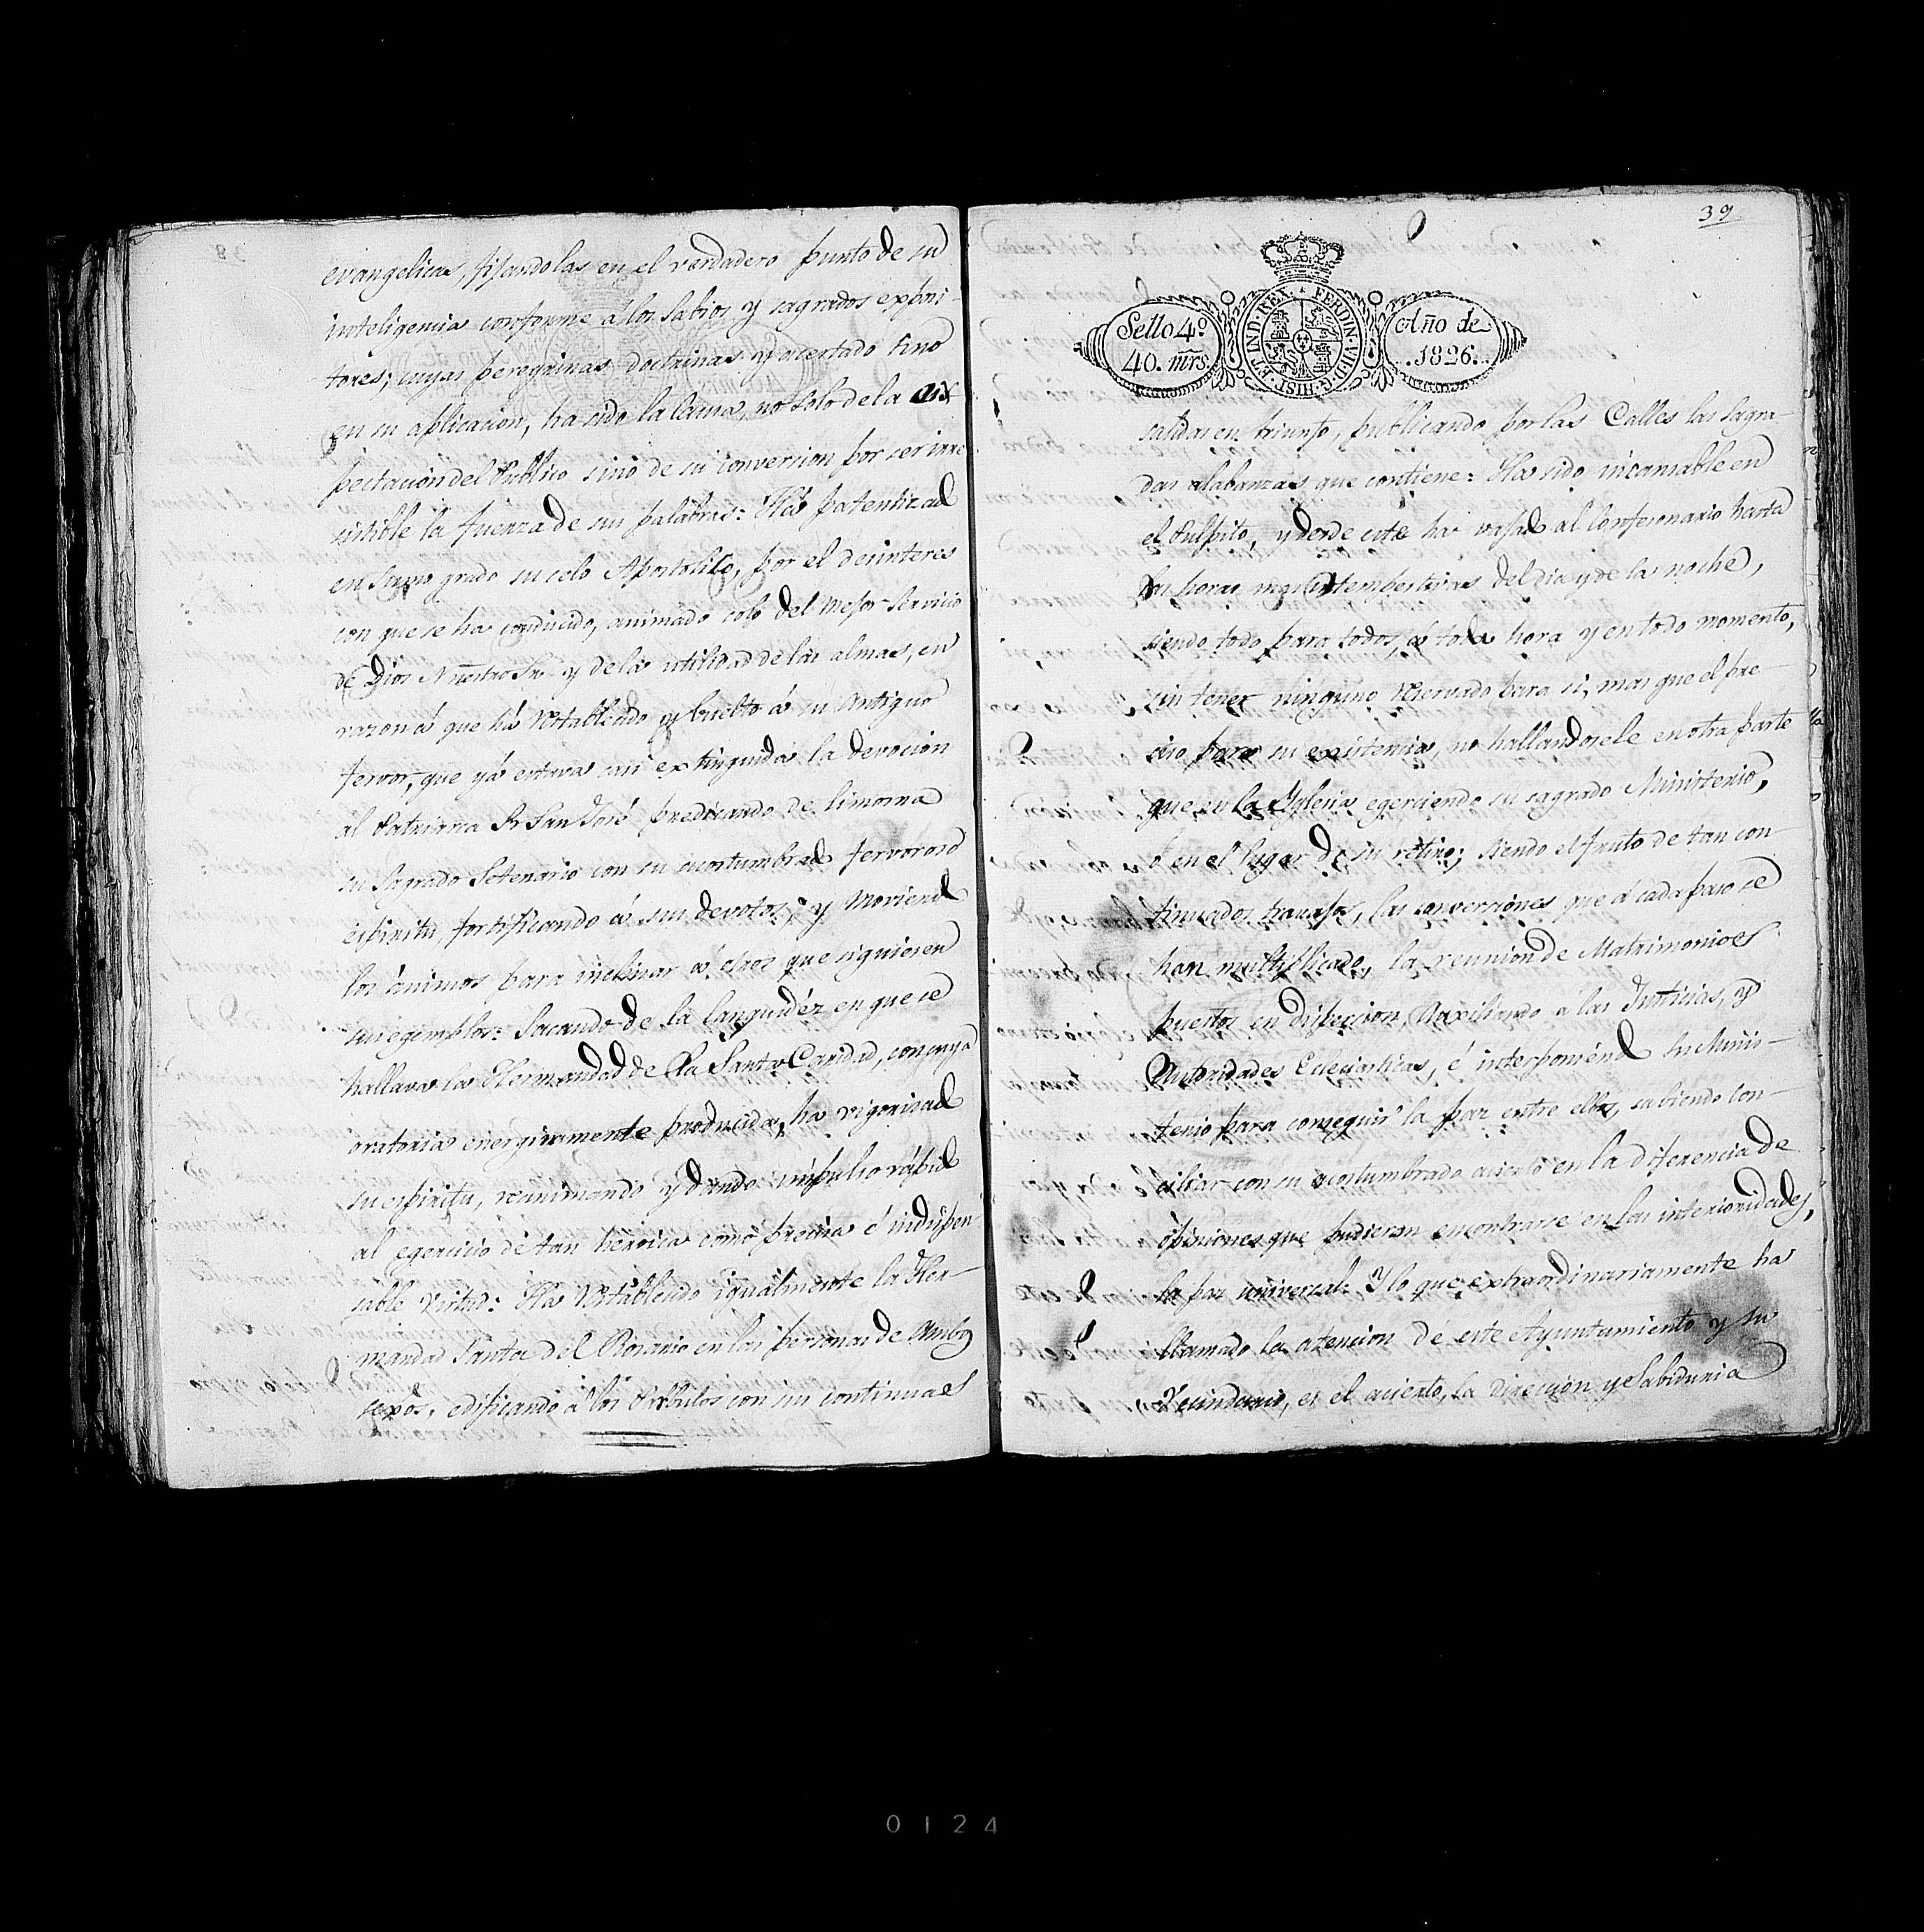 evangelicas, fijandolas en el verdadero punto de su
inteligencia conforme á los Sabios y sagrados exposi-
tores; cuyas peregrinas doctrinas y acertado tino
en su aplicacion, ha sido la Causa, no solo de la
pectacion del Publico sino de su conversion por ser irre-
sistible la fuerza de sus palabras: Há patentizado
en sumo grado su celo Apostolico, por el desinteres
con que se ha conducido, animado solo del mejor servicio
de Dios Nuestro Sr. y de la utilidad de las almas, en
razon á que há restablecido y buelto á su antiguo
fervor, que yá estava casi extinguida la devocion
al Patriarca Sr San José predicando de limosna
su Sagrado Setenario con su acostumbrado fervoroso
espiritu, fortificando á sus devotos, y moviendo
los ánimos para inclinar á otros que siguiesen
sus egemplos: Sacando de la languidéz en que se
hallava la Hermandad de la Santa Caridad, con cuya
oratoria energicamente producida, ha vigorisado
su espiritu, reanimando y dando impulso rápido
al egercicio de tan heroica como precisa é indispen
sable virtud: Ha restablecido igualmente la Her-
mandad Santa del Rosario en las personas de Ambos
sexos, edificando á los Parbulos con sus continuas
39
Sello 4º
40. mrs
FERDIN. VII. D. G. HISP. ET IND. REX.
Año de
1826.
salidas en triunfo, publicando por las Calles las Sagra-
das alabanzas que contiene: Ha sido incansable en
el Pulpito, y desde este ha pasado al Confesonario hasta
las horas mas intempestivas del dia y de la noche,
siendo todo para todos, á toda hora y en todo momento,
sin tener ninguno reservado para si, mas que el pre-
ciso para su existencia, no hallandosele en otra parte
que en la Yglesia egerciendo su sagrado Ministerio,
ó en el lugar de su retiro; siendo el fruto de tan con-
tinuados travajos, las conversiones que á cada paso se
han multiplicado, la reunion de Matrimonios
puestos en disercion, Auxiliando a las Justicias, y
Autoridades Eclesiasticas, é interponiendo su Minis-
terio para conseguir la paz entre ellos, sabiendo con-
ciliar con su acostumbrado acierto en la diferencia de
opiniones que pudieran encontrarse en las interioridades,
la paz universal: Y lo que extraordinariamente ha
llamado la atencion de este Ayuntamiento y su
Vecindario, es el acierto, la direccion y Sabiduria
0124